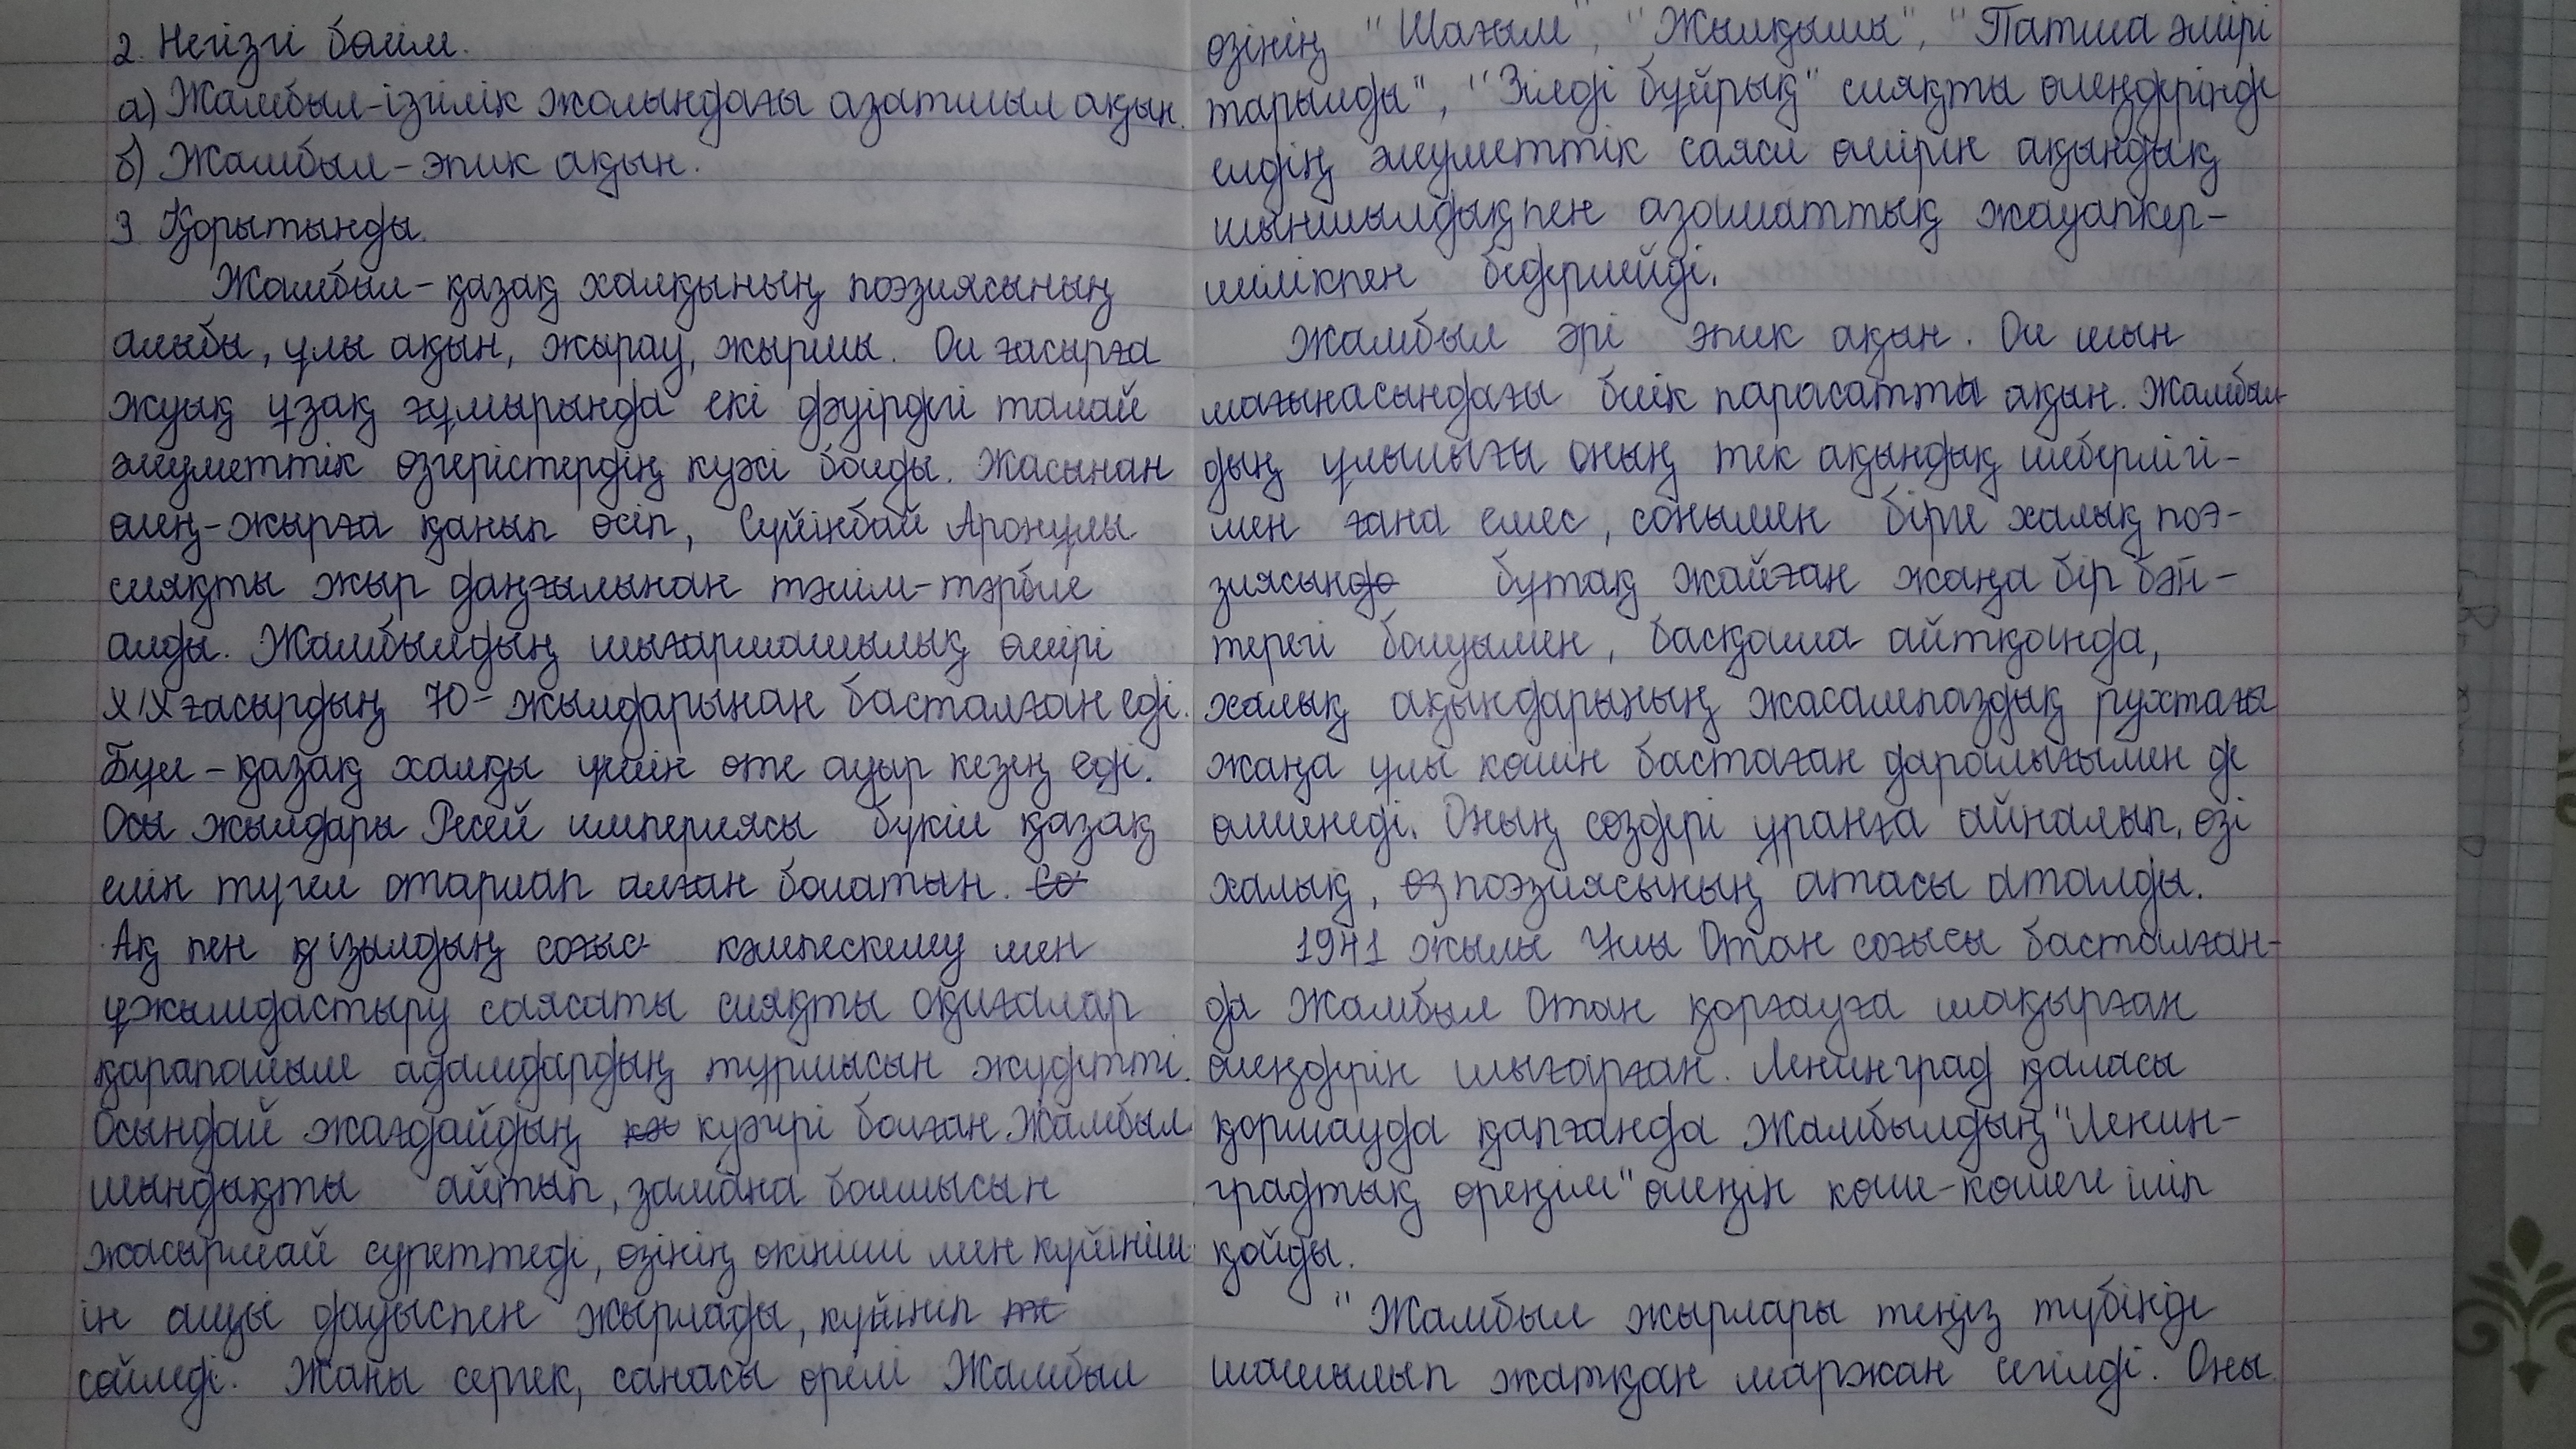 2. Негізгі бөлім.
а) Жамбыл-ізгілік жолындағы азатшыл ақын.
б) Жамбыл-эпик ақын.
3 Қорытынды.
Жамбыл-қазақ халқының поэзиясының
алыбы, ұлы ақын, жырау, жыршы. Ол ғасырға
жуық ұзақ ғұмырында екі дәуірдегі талай
әлеуметтік өзгерістердің куәсі болды. Жасынан
өлең-жырға қанып өсіп, Сүйінбай Аронұлы
сияқты жыр даңғылынан тәлім-тәрбие
алды. Жамбылдың шығармашылық өмірі
XIX ғасырдың 70-жылдарынан басталған еді.
Бұл-қазақ халқы үшін өте ауыр кезең еді.
Осы жылдары Ресей империясы бүкіл қазақ
елін түгел отарлап алған болатын. Со
Ақ пен қызылдың соғыс кәмпескелеу мен
ұжымдастыру саясаты сияқты оқиғалар
қарапайым адамдардың тұрмысын жүдетті.
Осындай жағдайдың куәгері болған Жамбыл
шындықты айтып, замана болмысын
жасырмай суреттеді, өзінің өкініші мен күйініш-
ін ащы дауыспен жырлады, күйініп
сөйледі. Жаны сергек, санасы өрелі Жамбыл
өзінің "Шағым", "Жылқышы", "Патша әмірі
тарылды", "Зілді бұйрық" сияқты өлеңдерінде
елдің әлеуметтік саяси өмірін ақындық
шыншылдықпен азаматтық жауапкер-
шілікпен бедерлейді.
Жамбыл әрі эпик ақын. Ол шын
мағынасындағы биік парасатты ақын. Жамбыл-
дың ұлылығы оның тек ақындық шеберлігі-
мен ғана емес, сонымен бірге халық поэ-
зиясында бұтақ жайған жаңа бір бәй-
терегі болуымен, басқаша айтқанда,
халық ақындарының жасампаздық рухтағы
жаңа ұлы көшін бастаған даралығымен де
өлшенеді. Оның сөздері ұранға айналып, өзі
халық, өз поэзиясының атасы аталды.
1941 жылы Ұлы Отан соғысы басталған-
да Жамбыл Отан қорғауға шақырған
өлеңдерін шығарған. Ленинград қаласы
қоршауда қалғанда Жамбылдың "Ленин-
градтық өренім" өлеңін көше-көшеге іліп
қойды.
"Жамбыл жырлары теңіз түбінде
шашылып жатқан маржан секілді. Оны